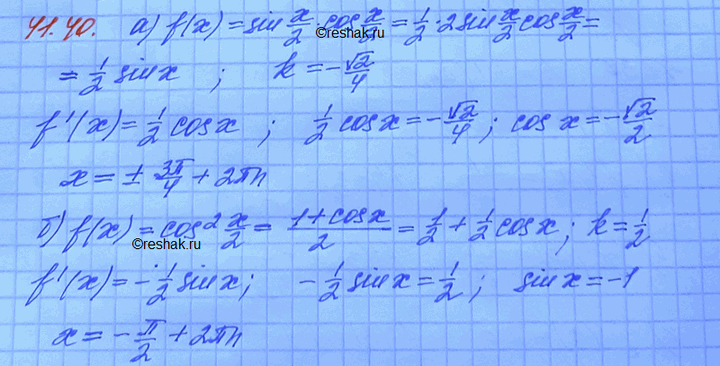 41.40. а) f(x) = sin x/2 · cos x/2 = 1/2 · 2 sin x/2 cos x/2 =
©reshak.ru
= 1/2 sin x ; k = -√2/4
f'(x) = 1/2 cos x ; 1/2 cos x = -√2/4 ; cos x = -√2/2
x = ± 3π/4 + 2πn
б) f(x) = cos² x/2 = (1+cos x)/2 = 1/2 + 1/2 cos x ; k = 1/2
©reshak.ru
f'(x) = -1/2 sin x ; -1/2 sin x = 1/2 ; sin x = -1
x = -π/2 + 2πn